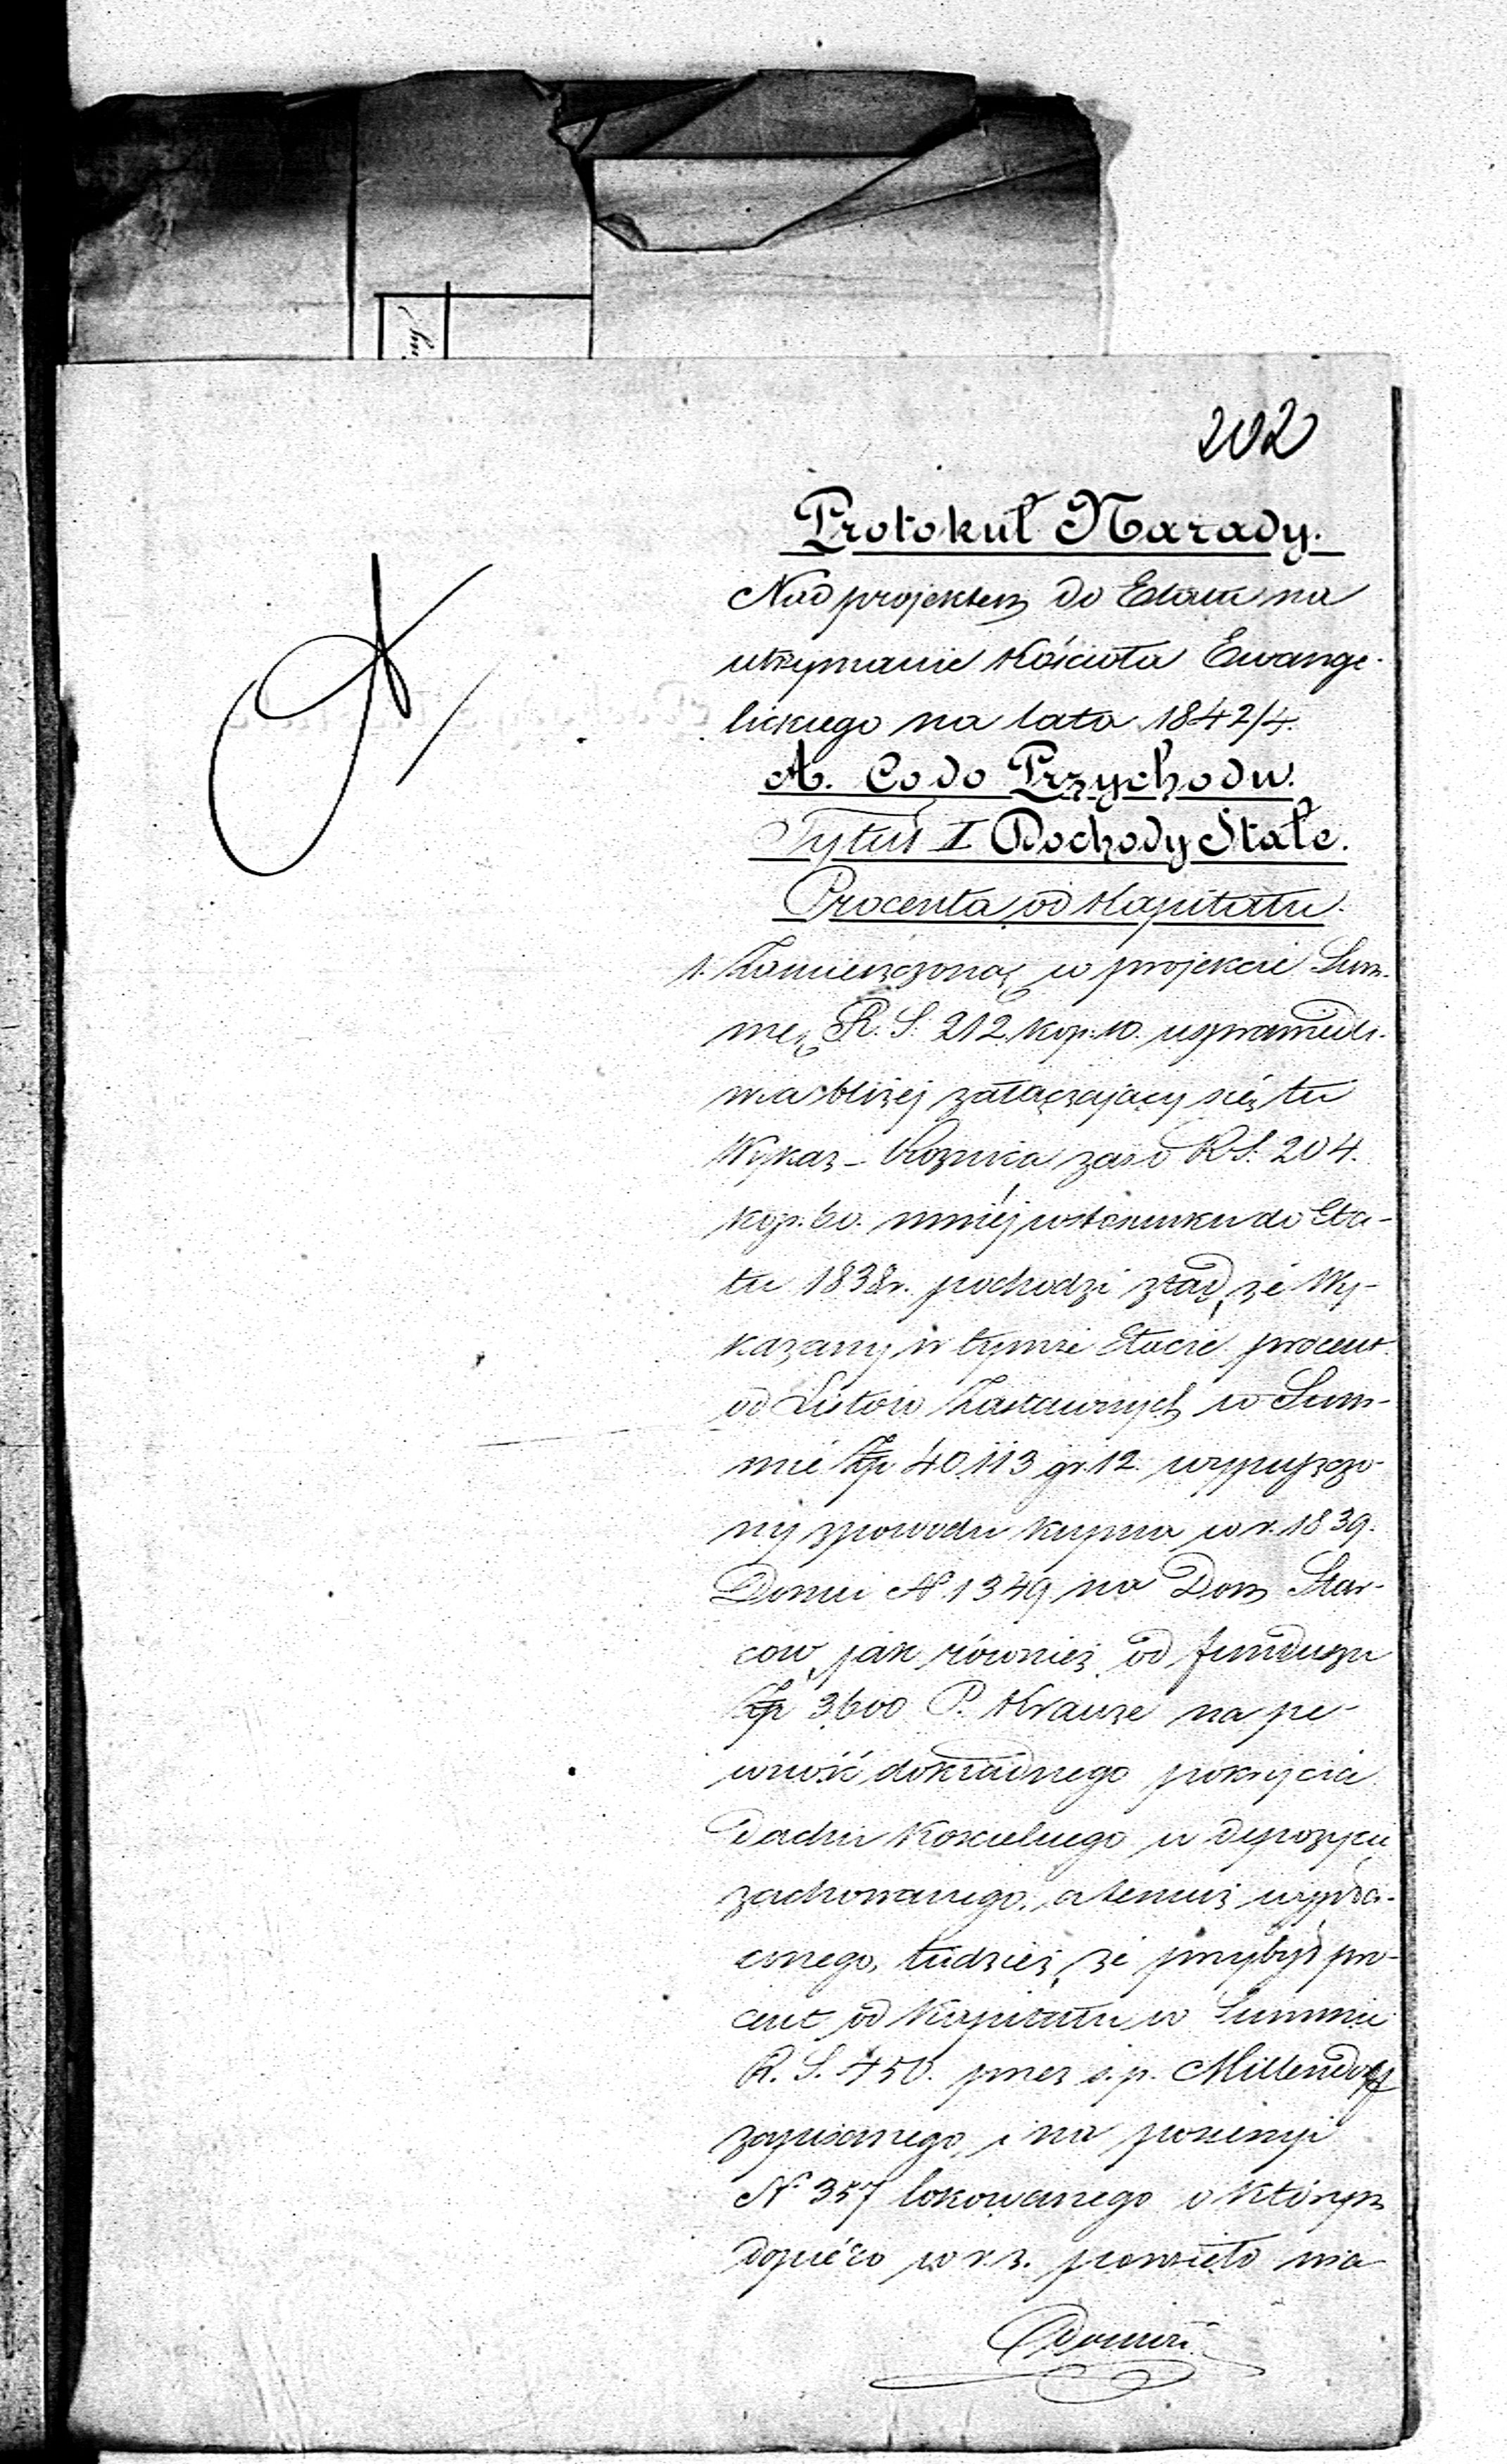 ny
202
Protokuł Narady.
Nad projektem do Etatu na
utrzymanie Kościoła Ewange-
lickiego na lata 1842/4.
A. Co do Przychodu.
Tytuł I Dochody Stałe.
Procenta od Kapitału.
1. Zamieszczoną w projekcie Sum-
mę R. S. 212 kop: 10. usprawiedli-
wia bliżej załączający się tu
Wykaz – Różnica zaś o RS. 204.
kop. 60. mniej w stosunku do Eta-
tu 1838r. pochodzi ztąd, że Wy-
kazany w tymże Etacie procent
od Listów Zastawnych w Sum-
mie Zp 40113 gr. 12. wypuszczo-
ny z powodu kupna w r. 1839.
Domu N. 1349 na Dom Star-
ców, jak również od funduszu
Zp 3600 P. Krauze na pe-
wność dokładnego pokrycia
Dachu Koscielnego w depozycie
zachowanego, a temuż wypła-
conego, tudzież, że przybył pro-
cent od Kapitału w Summie
R. S. 450. przez ś. p. Millendorff
zapisanego i na posessyi
N 357 lokowanego o którym
dopiéro w r. z. powzięto wia-
domość